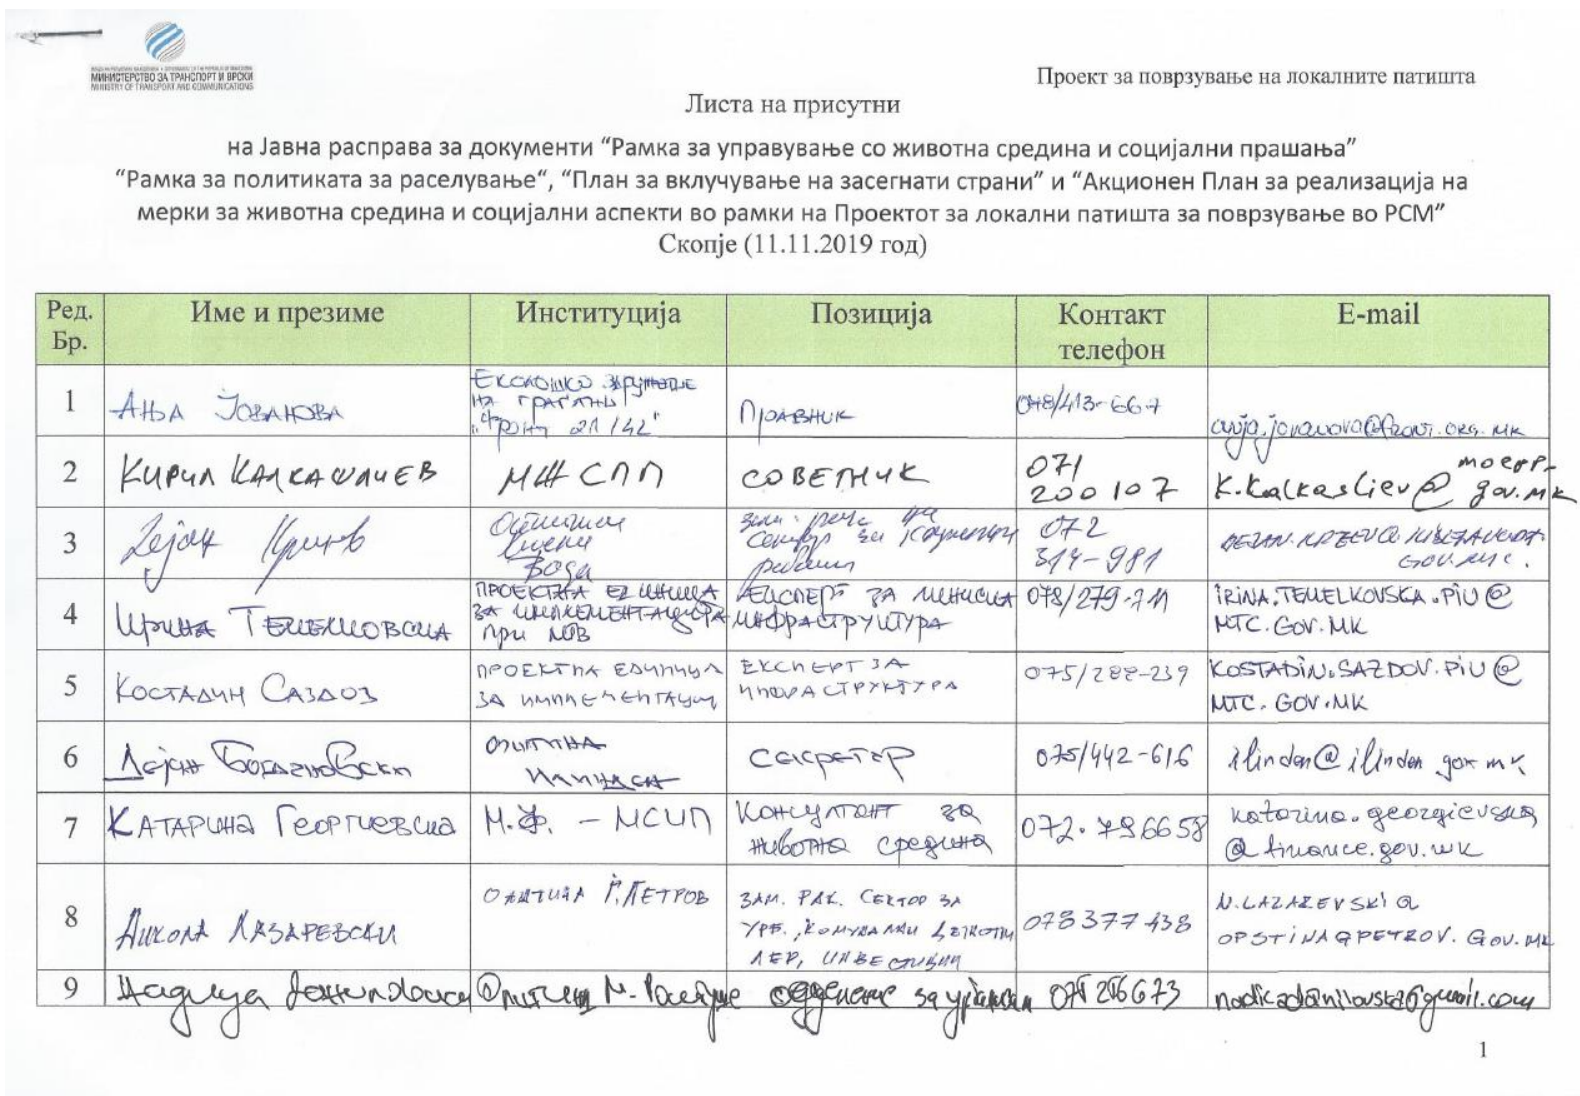 МИНИСТЕРСТВО ЗА ТРАНСПОРТ И ВРСКИ
MINISTRY OF TRANSPORT AND COMMUNICATIONS
Проект за поврзување на локалните патишта
Листа на присутни
на Јавна расправа за документи “Рамка за управување со животна средина и социјални прашања”
“Рамка за политиката за раселување“, “План за вклучување на засегнати страни” и “Акционен План за реализација на
мерки за животна средина и социјални аспекти во рамки на Проектот за локални патишта за поврзување во РСМ”
Скопје (11.11.2019 год)
Ред. Бр. Име и презиме Институција Позиција Контакт телефон E-mail
1 АЊА ЈОВАНОВА Еколошко здружение на граѓани "Фронт 21/42" Правник 078/413-667 anja.jovanova@front.org.mk
2 КИРИЛ КАЛКАШЛИЕВ МЖСПП СОВЕТНИК 071 200107 K.Kalkasliev@moepp.gov.mk
3 Дејан 072 314-981
4 Ирина Темелковска ПРОЕКТНА ЕДИНИЦА ЗА ИМПЛЕМЕНТАЦИЈА при МТВ ЕКСПЕРТ ЗА ИНФРАСТРУКТУРА 078/279-711 IRINA.TEMELKOVSKA.PIU@ MTC.GOV.MK
5 КОСТАДИН САЗДОВ ПРОЕКТНА ЕДИНИЦА ЗА ЕКСПЕРТ ЗА ИНФРАСТРУКТУРА KOSTADIN.SAZDOV.PIU@ MTC.GOV.MK
6 Дејан Општина Илинден Секретар 075/442-616 ilinden@ilinden.gov.mk
7 КАТАРИНА ГЕОРГИЕВСКА М.Ф. – МСИП Консултант за животна средина 072.796658 katarina.georgievska @finance.gov.mk
8 Никола ЛАЗАРЕВСКИ ОПШТИНА Ѓ.ПЕТРОВ ЗАМ. РАК. СЕКТОР ЗА УРБ., КОМУНАЛНИ ИНВЕСТИЦИИ 078377438 N.LAZAREVSKI@ OPSTINAGPETROV.GOV.MK
9 Општина одделение за nadicadanilovska@gmail.com
1